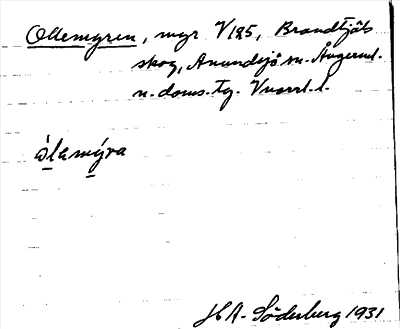 Ollemyren, myr V125, Brandtjäls
skog, Anundsjö sn. Ångerml.
n. doms. tg. Vnorrl. l.
ålemýra
H A. Söderberg 1931